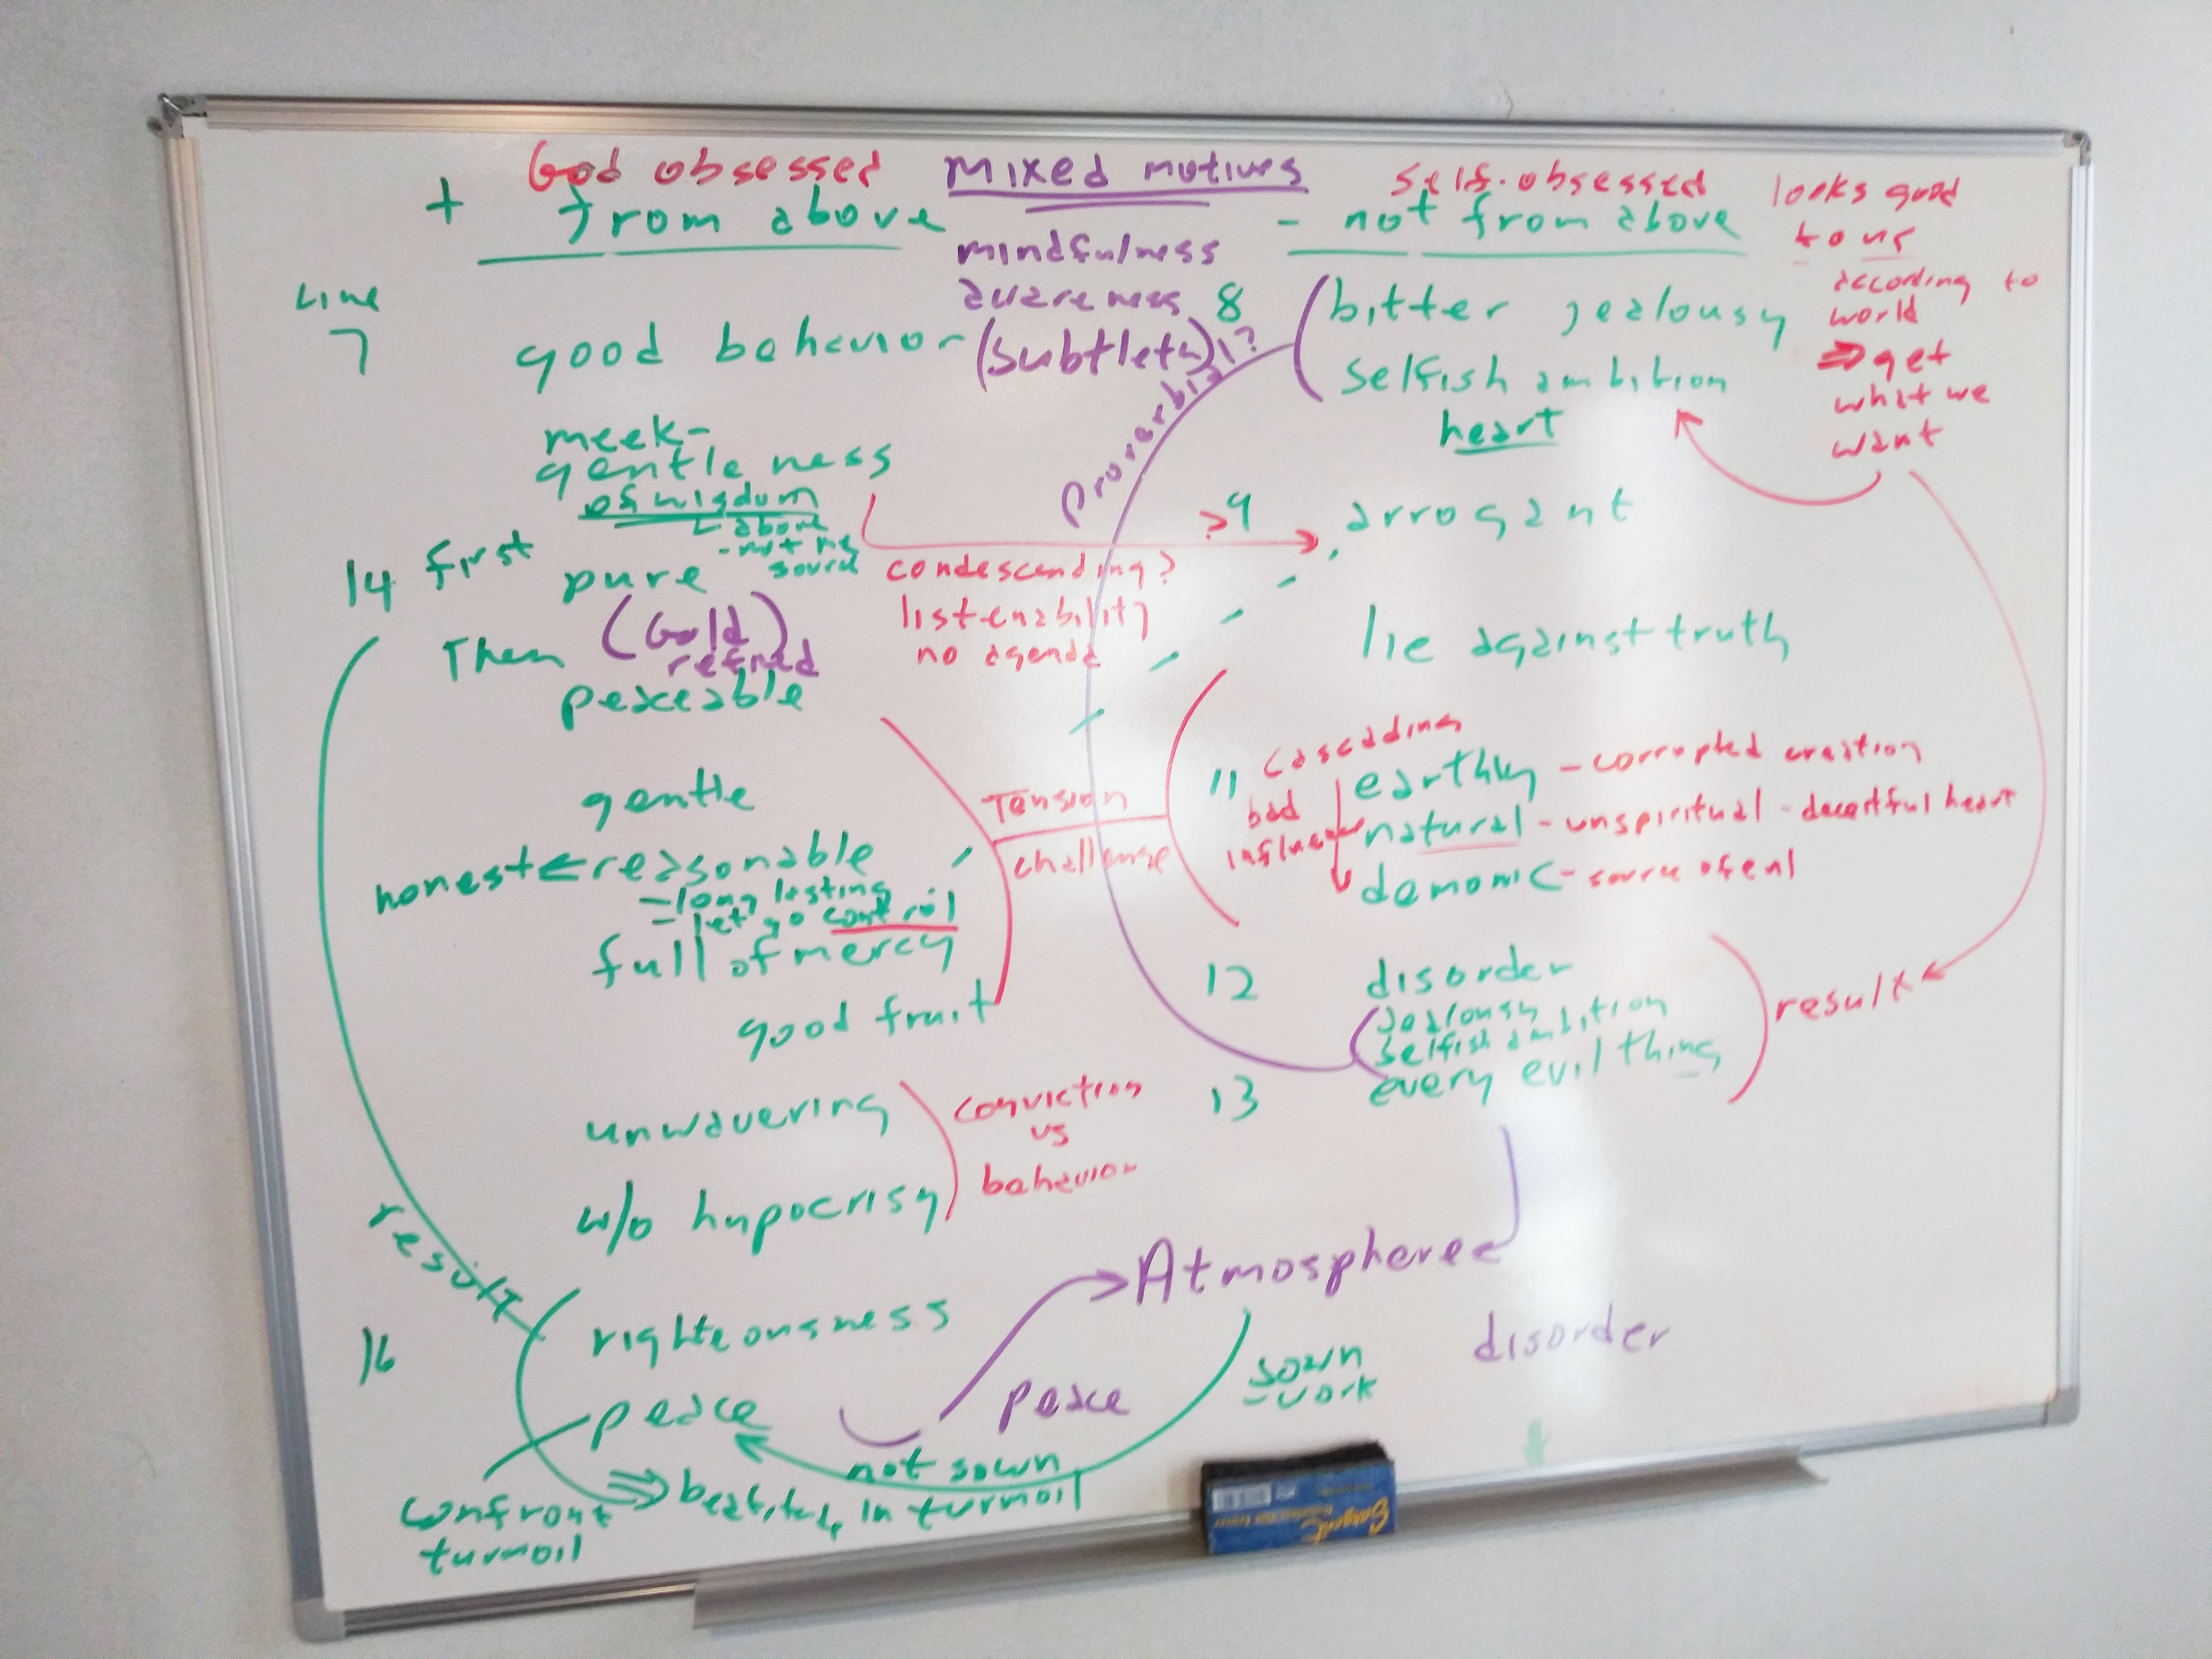 God obsessed
+ from above
mixed motives
mindfulness
awareness
(subtlety)
self-obsessed
- not from above
looks good
to us
according to
world
⇒ get
what we
want
Line
7
good behavior
meek-
gentleness
of wisdom
above
- not me
source
14 first
pure
(Gold)
refined
Then
peaceable
gentle
honest ← reasonable
- long lasting
- let go control
full of mercy
good fruit
unwavering
w/o hypocrisy
conviction
vs
behavior
result
16
righteousness
peace
confront
turmoil
not sown
in turmoil
condescending?
listenability
no agenda
Tension
challenge
Proverbial?
8
bitter jealousy
selfish ambition
heart
>9
arrogant
lie against truth
11
cascading
bad
earthly - corrupted creation
natural - unspiritual - deceitful heart
demonic - source of evil
12
disorder
jealousy
selfish ambition
13
every evil thing
result
Atmosphere
peace
disorder
sown
- work